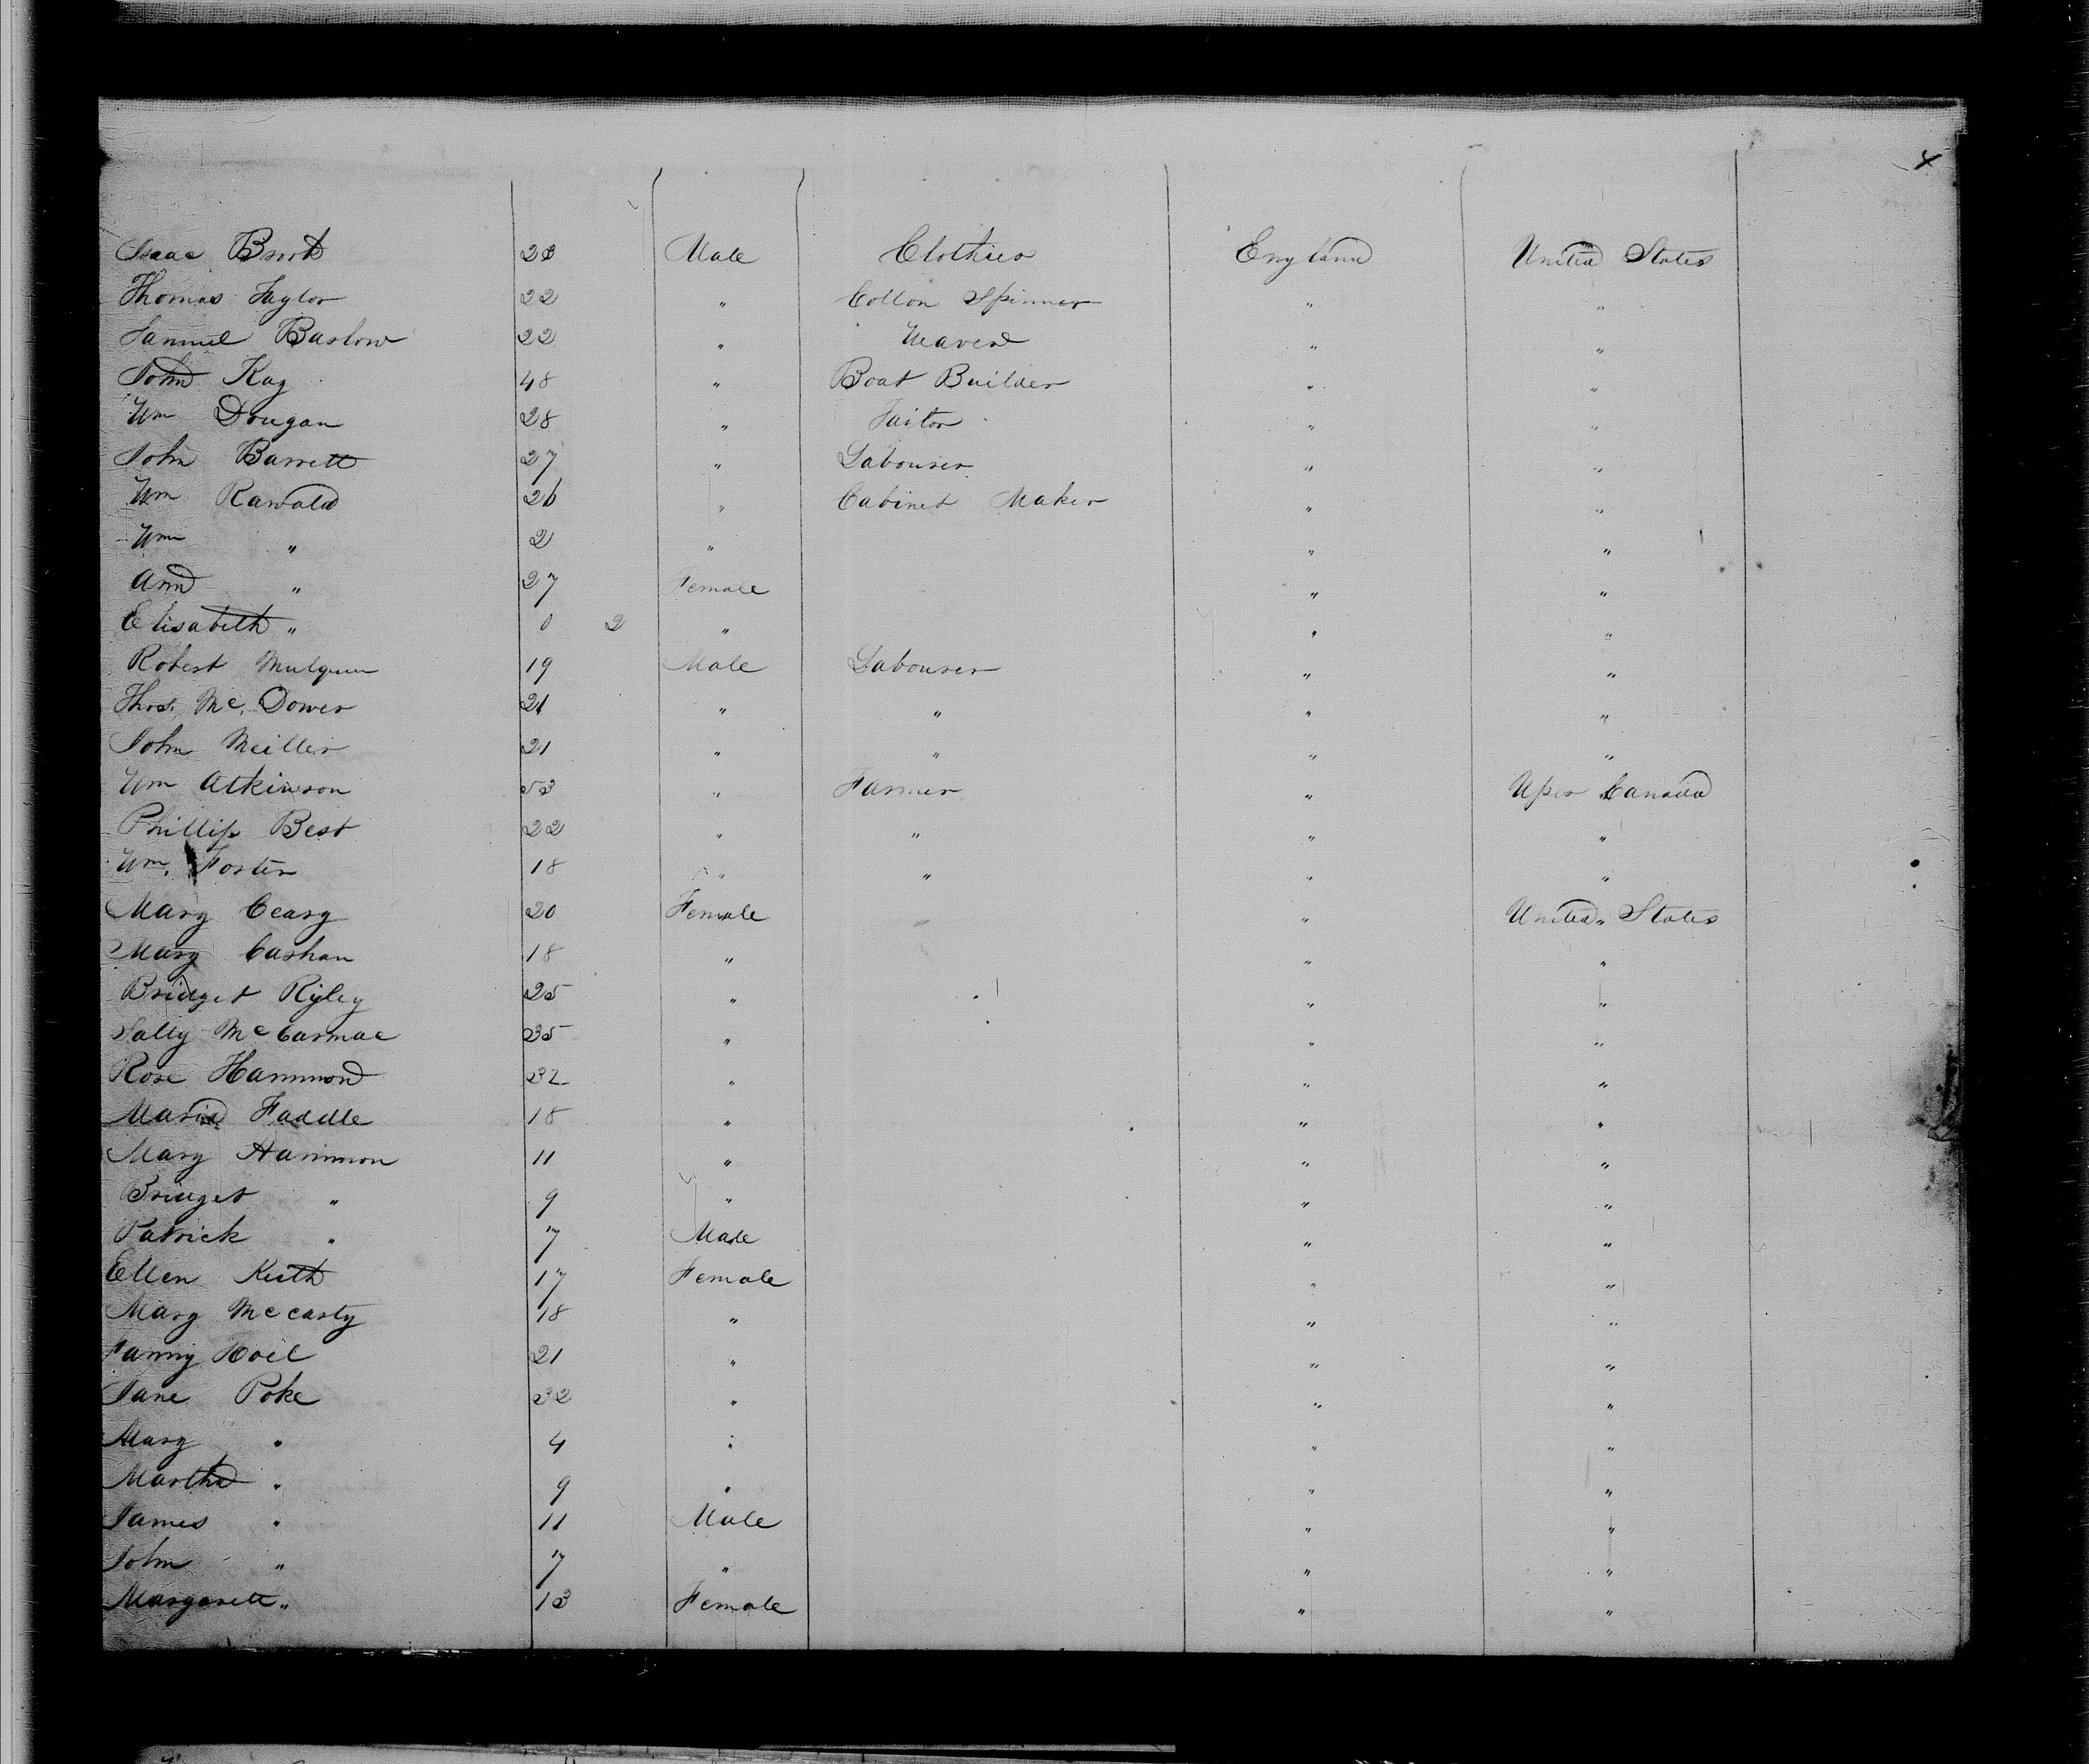 Isaac 23 Male Clothier England United States
Thomas Taylor 22 " Cotton Spinner " "
Samuel Barlow 22 " Weaver " "
John Kay 48 " Boat Builder " "
Wm Dougan 28 " Tailor " "
John Barrett 27 " Labourer " "
Wm Rawald 26 " Cabinet Maker " "
Wm " 2 " " "
Ann " 27 Female " "
Elisabeth " 0 2 " " "
Robert 19 Male Labourer " "
Thos. Mc. Dower 21 " " " "
John Meiller 21 " " " "
Wm Atkinson 53 " Farmer " Uper Canada
Phillip Best 22 " " " "
Wm. Foster 18 " " " "
Mary Ceary 20 Female " United " States
Mary Cashan 18 " " "
Bridget Ryley 25 " " "
Sally McCarmac 35 " " "
Rose Hammond 32 " " "
Maria Faddle 18 " " "
Mary Hammon 11 " " "
Bridget " 9 " " "
Patrick " 7 Male " "
Ellen Keith 17 Female " "
Mary Mccarty 18 " " "
Fanny 21 " " "
Jane Poke 32 " " "
Mary " 4 " " "
Martha " 9 " " "
James " 11 Male " "
John " 7 " " "
Margarett " 13 Female " "